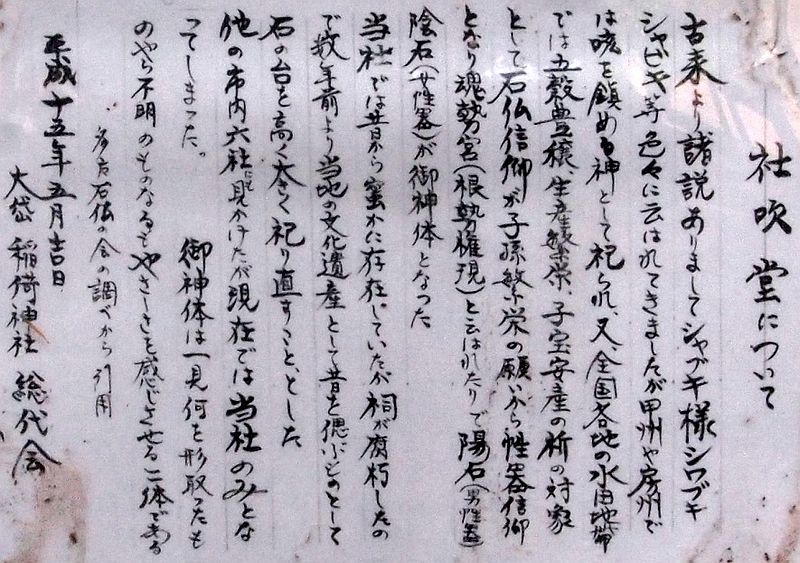 社吹堂について
古来より諸説ありましてシャブキ様シワブキ
シャビキ等色々に云はれてきましたが甲州や房州で
は咳を鎮める神として祀られ、又、全国各地の水田地帯
では五穀豊穣、生産繁栄、子宝安産の祈の対象
として石仏信仰が子孫繁栄の願いから性器信仰
となり魂勢宮(根勢権現)と云はれたりで陽石(男性器)
陰石(女性器)が御神体となった
当社では昔から蜜かに存在していたが祠が腐朽したの
で数年前より当地の文化遺産として昔を偲ぶものとして
石の台を高く大きく祀り直すこと、とした
他の市内六社にも見かけたが現在では当社のみとな
ってしまった。
御神体は一見何を形取ったも
のやら不明のものなるもやさしさを感じさせる二体である
多古石仏の会の調べから引用
平成十五年五月吉日
大袋稲荷神社 総代会